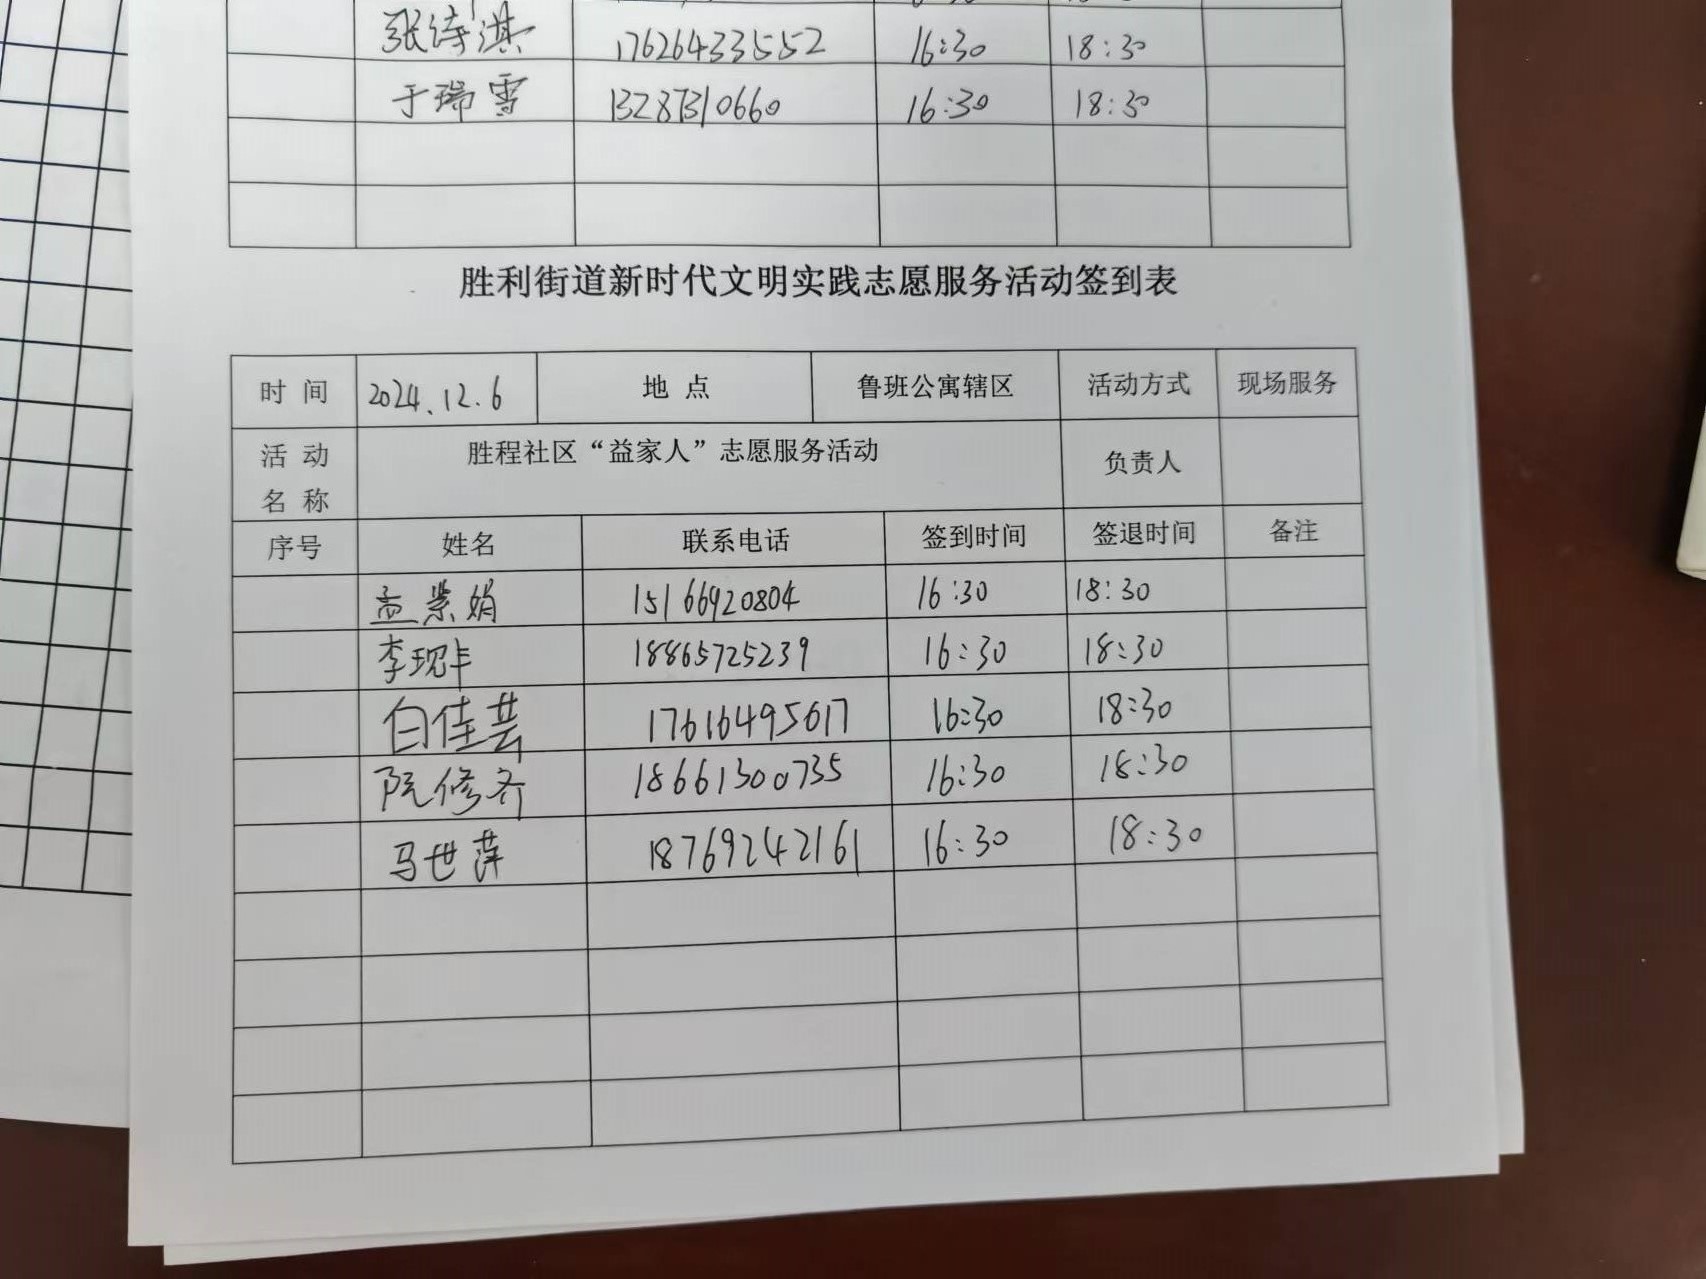 张诗淇 17626433552 16:30 18:30
于瑞雪 13287310660 16:30 18:30
胜利街道新时代文明实践志愿服务活动签到表
时 间 2024.12.6 地 点 鲁班公寓辖区 活动方式 现场服务
活 动 名 称 胜程社区“益家人”志愿服务活动 负责人
序号 姓名 联系电话 签到时间 签退时间 备注
孟紫娟 15166920804 16:30 18:30
李现 18865725239 16:30 18:30
白佳芸 17616495617 16:30 18:30
阮修齐 18661300735 16:30 18:30
马世萍 18769242161 16:30 18:30